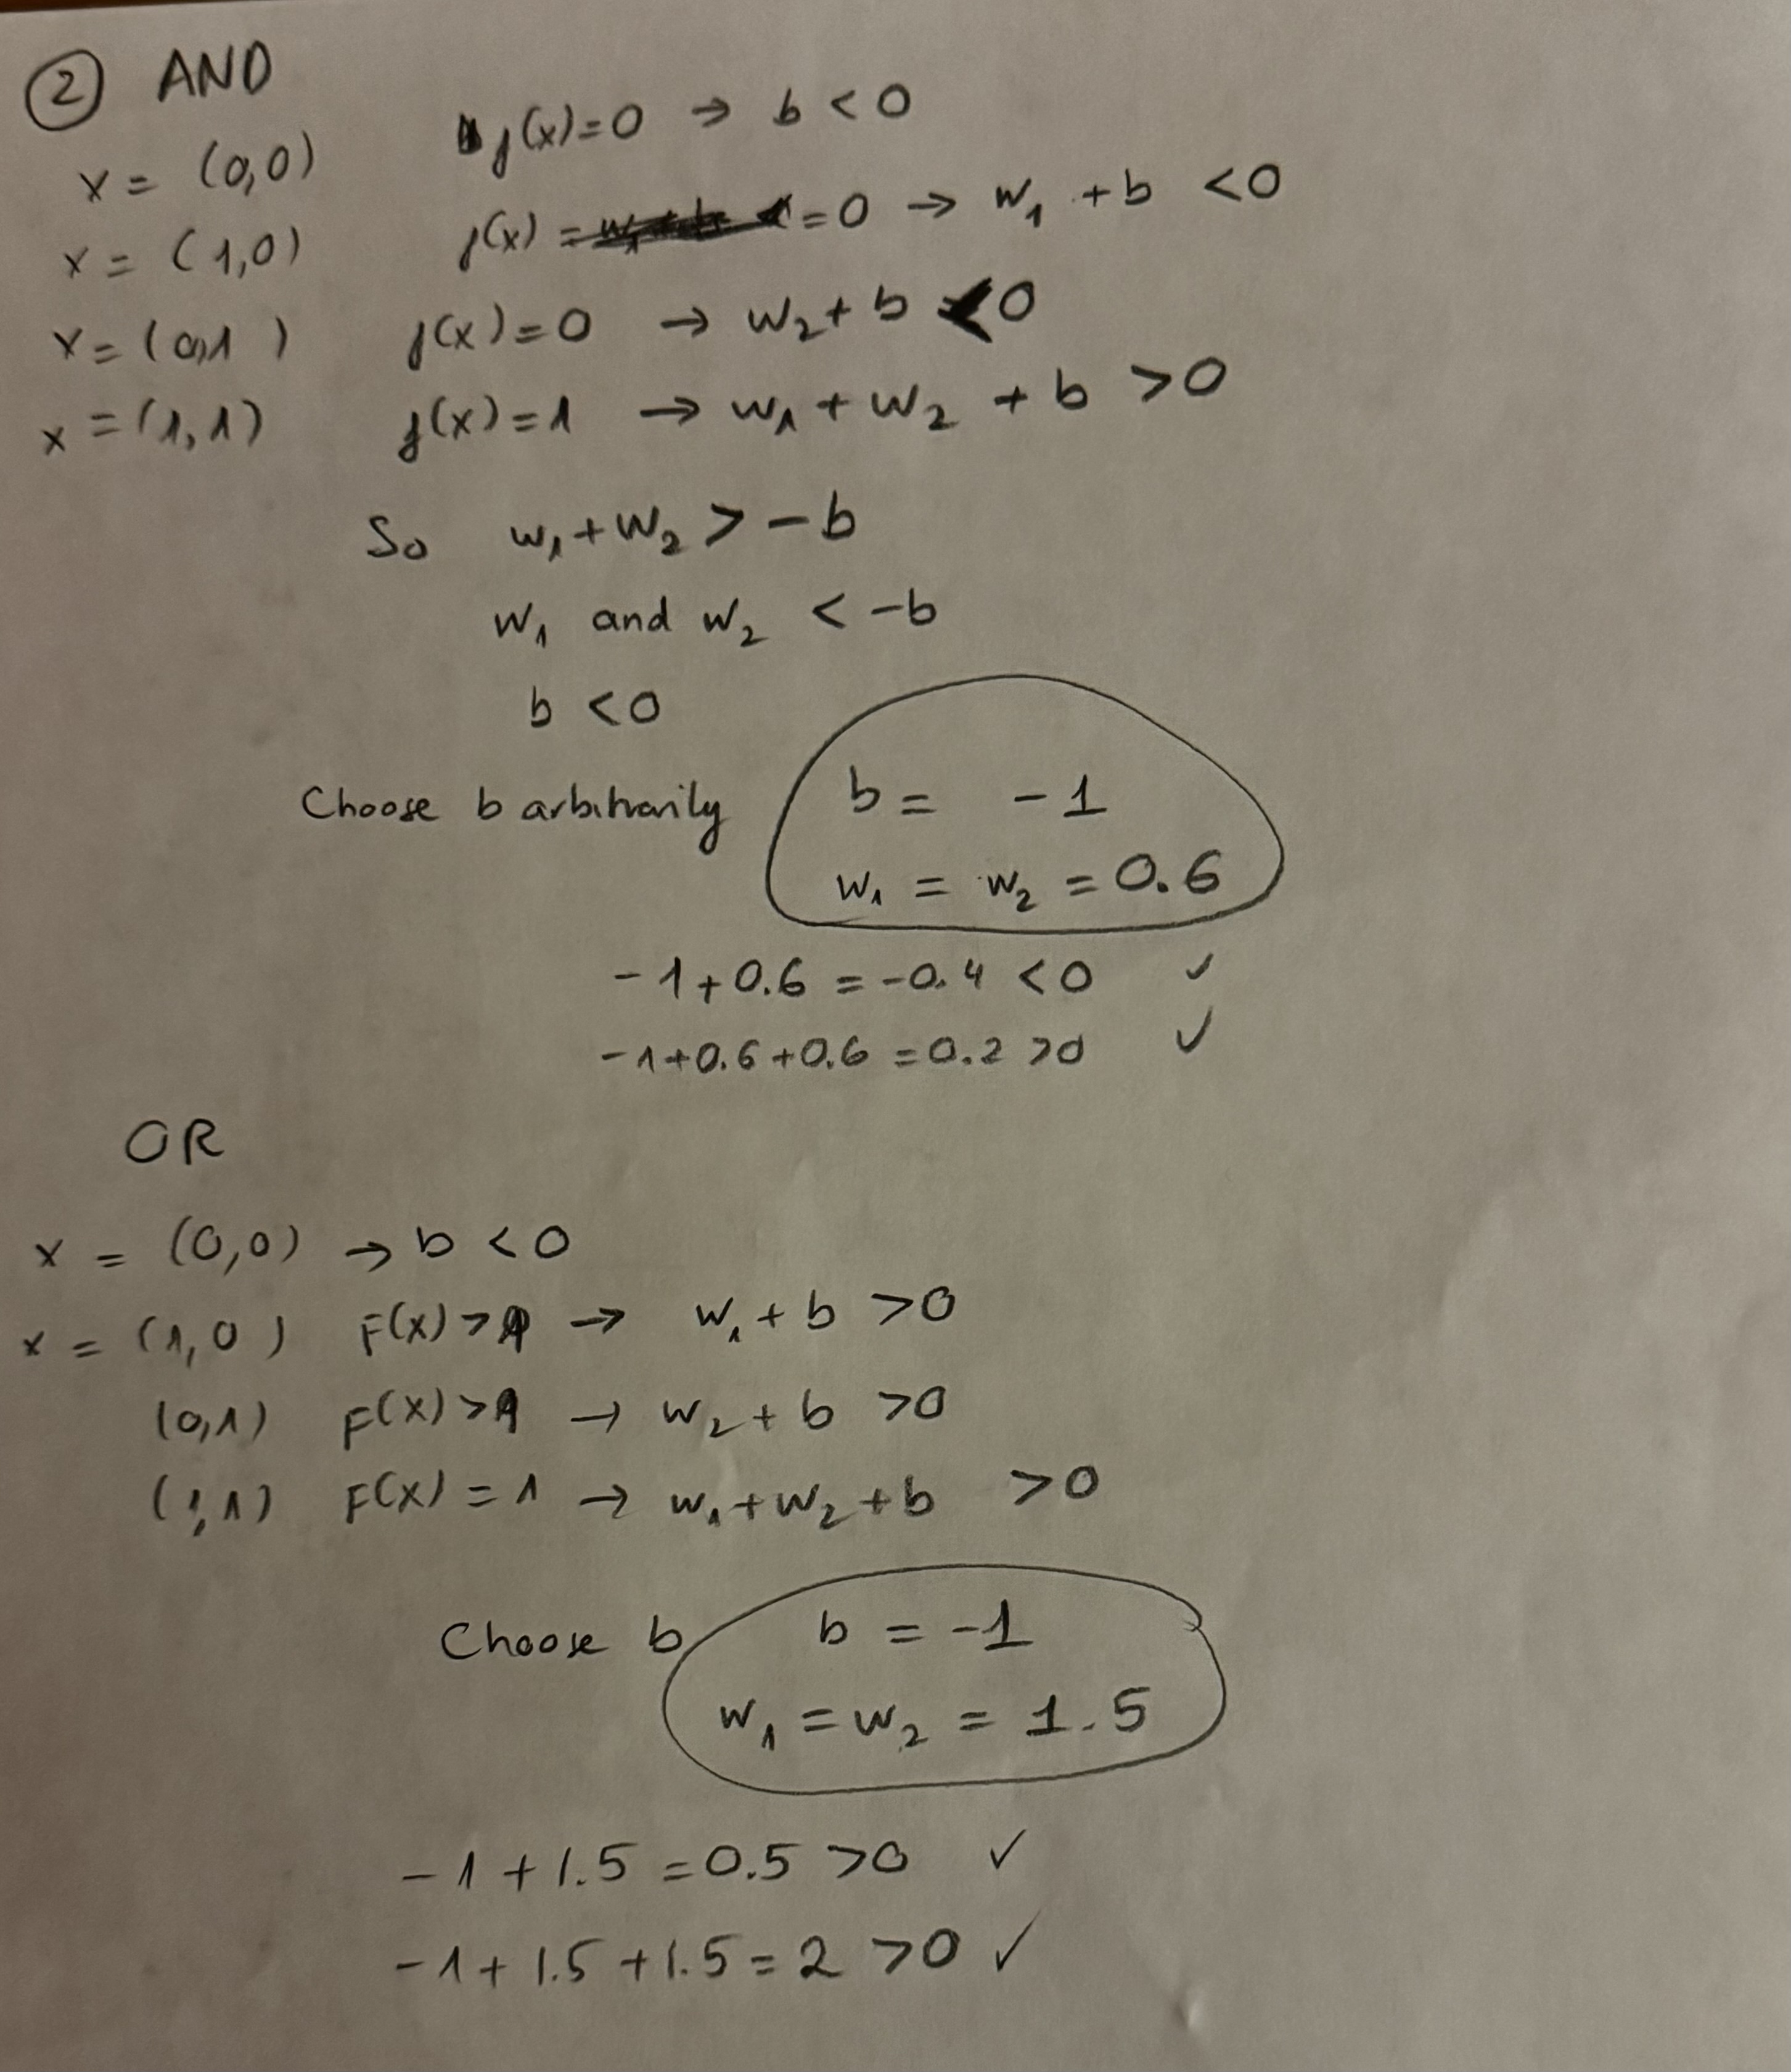 ② AND
x = (0,0) f(x)=0 → b < 0
x = (1,0) f(x) = 0 → w₁ + b < 0
x = (0,1) f(x)=0 → w₂ + b < 0
x = (1,1) f(x)=1 → w₁ + w₂ + b > 0
So w₁ + w₂ > -b
w₁ and w₂ < -b
b < 0
Choose b arbitrarily b = -1
w₁ = w₂ = 0.6
-1 + 0.6 = -0.4 < 0 ✓
-1+0.6+0.6 = 0.2 >0 ✓
OR
x = (0,0) → b < 0
x = (1,0) F(x) > → w₁ + b > 0
(0,1) F(x) > → w₂ + b > 0
(1,1) F(x) = 1 → w₁ + w₂ + b > 0
Choose b b = -1
w₁ = w₂ = 1.5
-1 + 1.5 = 0.5 > 0 ✓
-1 + 1.5 + 1.5 = 2 > 0 ✓